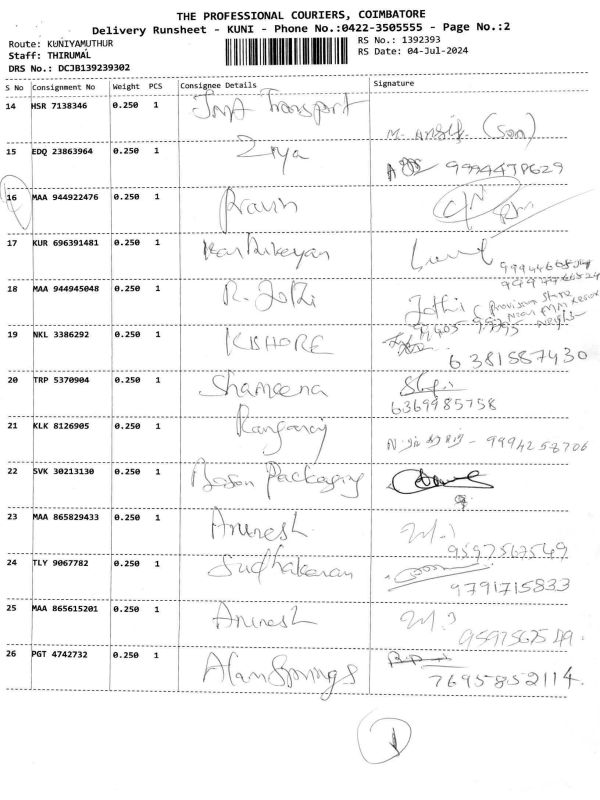 THE PROFESSIONAL COURIERS, COIMBATORE
Delivery Runsheet - KUNI - Phone No.:0422-3505555 - Page No.:2
Route: KUNIYAMUTHUR
RS No.: 1392393
Staff: THIRUMAL
RS Date: 04-Jul-2024
DRS No.: DCJB139239302
S No Consignment No Weight PCS Consignee Details Signature
14 HSR 7138346 0.250 1 Transport
M. (Son)
15 EDQ 23863964 0.250 1 Ziya
16 MAA 944922476 0.250 1 Pravin
17 KUR 696391481 0.250 1 Karthikeyan
18 MAA 944945048 0.250 1 R. Jothi Jothi
Provision Store
19 NKL 3386292 0.250 1 KISHORE
6381587430
20 TRP 5370904 0.250 1 Shameena
6369985758
21 KLK 8126905 0.250 1 Rangaraj - 9994258706
22 SVK 30213130 0.250 1 Packaging
23 MAA 865829433 0.250 1
9597567549
24 TLY 9067782 0.250 1 Sudhakaran
9791715833
25 MAA 865615201 0.250 1
26 PGT 4742732 0.250 1 Alam Springs
7695852114.